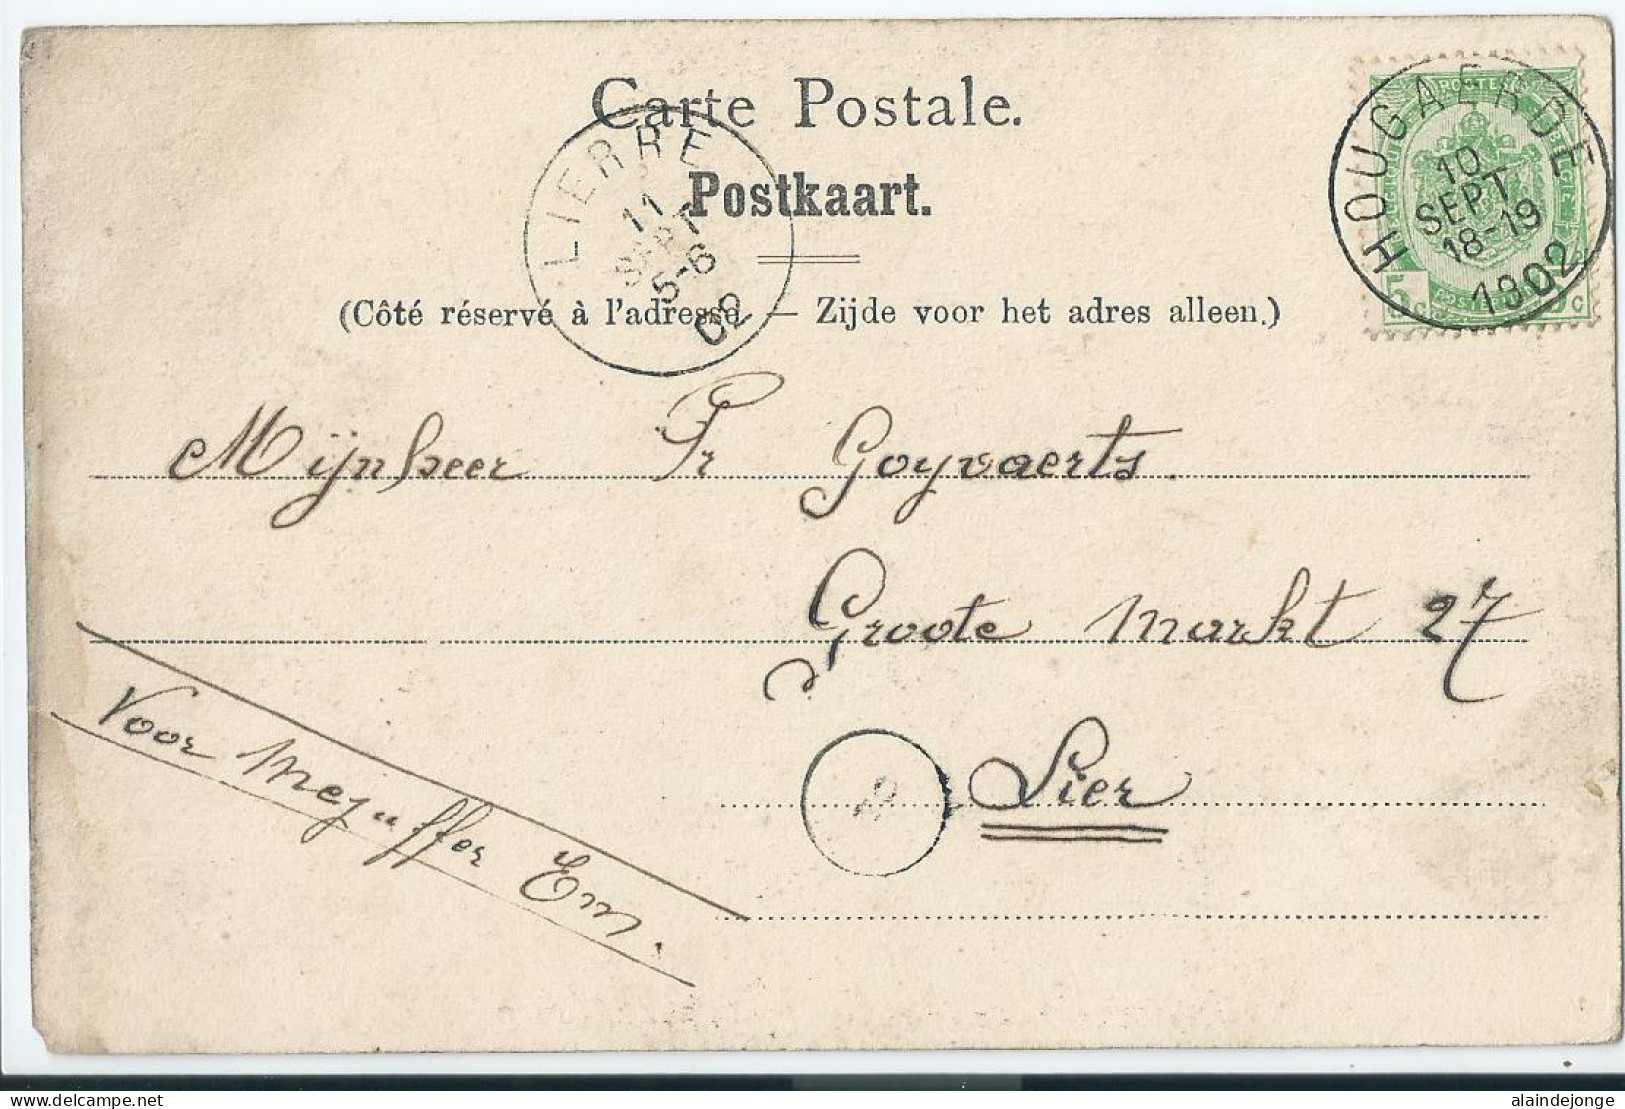 Carte Postale.
Postkaart.
(Côté réservé à l'adresse — Zijde voor het adres alleen.)
HOUGAERDE
10
SEPT
18-19
1902
LIERRE
11
SEPT
5-6
02
5 C
Mijnheer Fr Goyvaerts.
Groote Markt 27
Lier
Voor Mejuffer Em.
delcampe.net
alaindejonge